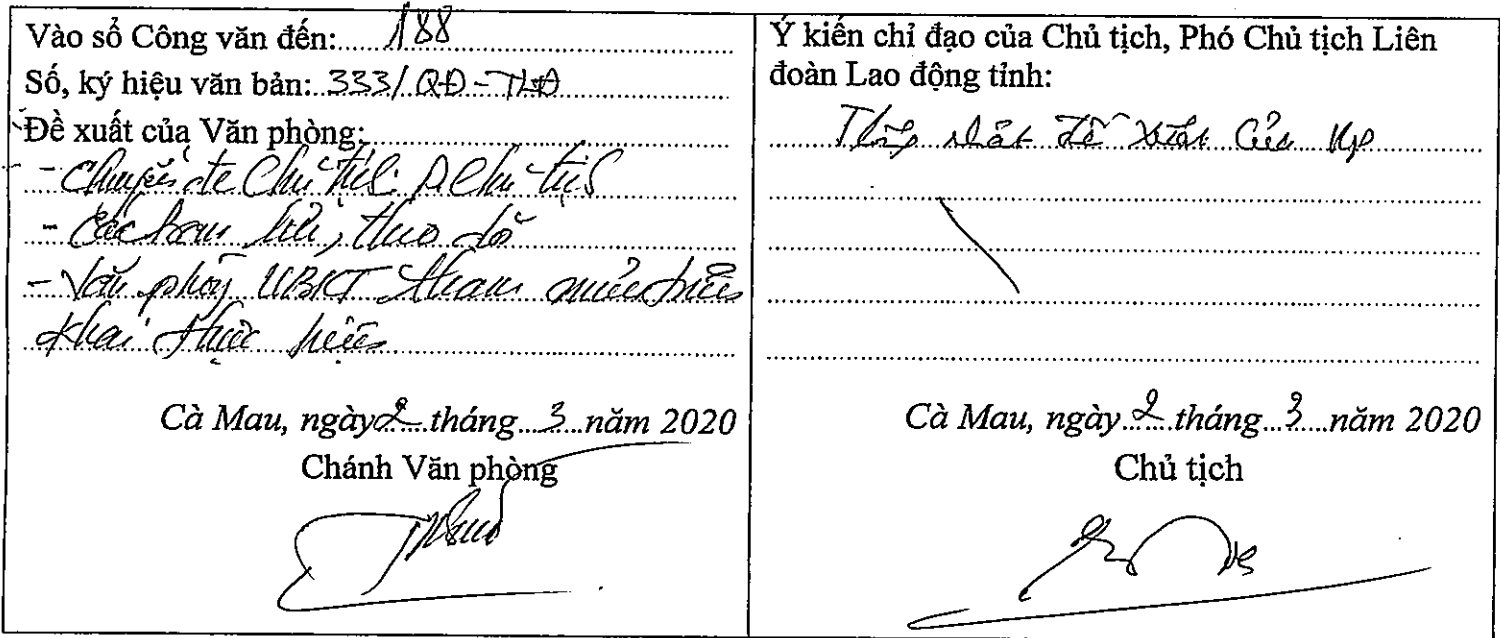 Vào sổ Công văn đến: 188
Số, ký hiệu văn bản: 333/QĐ-TLĐ
Đề xuất của Văn phòng:
- Chuyển đ/c Chủ tịch, P Chủ tịch
- Các ban lưu, theo dõi
- Văn phòng UBKT tham mưu triển
khai thực hiện
Cà Mau, ngày 2 tháng 3 năm 2020
Chánh Văn phòng
Ý kiến chỉ đạo của Chủ tịch, Phó Chủ tịch Liên
đoàn Lao động tỉnh:
Thống nhất đề xuất của VP
Cà Mau, ngày 2 tháng 3 năm 2020
Chủ tịch